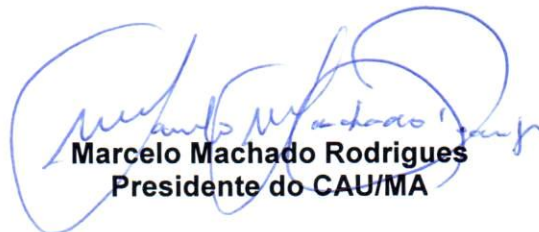 Marcelo Machado Rodrigues
Presidente do CAU/MA